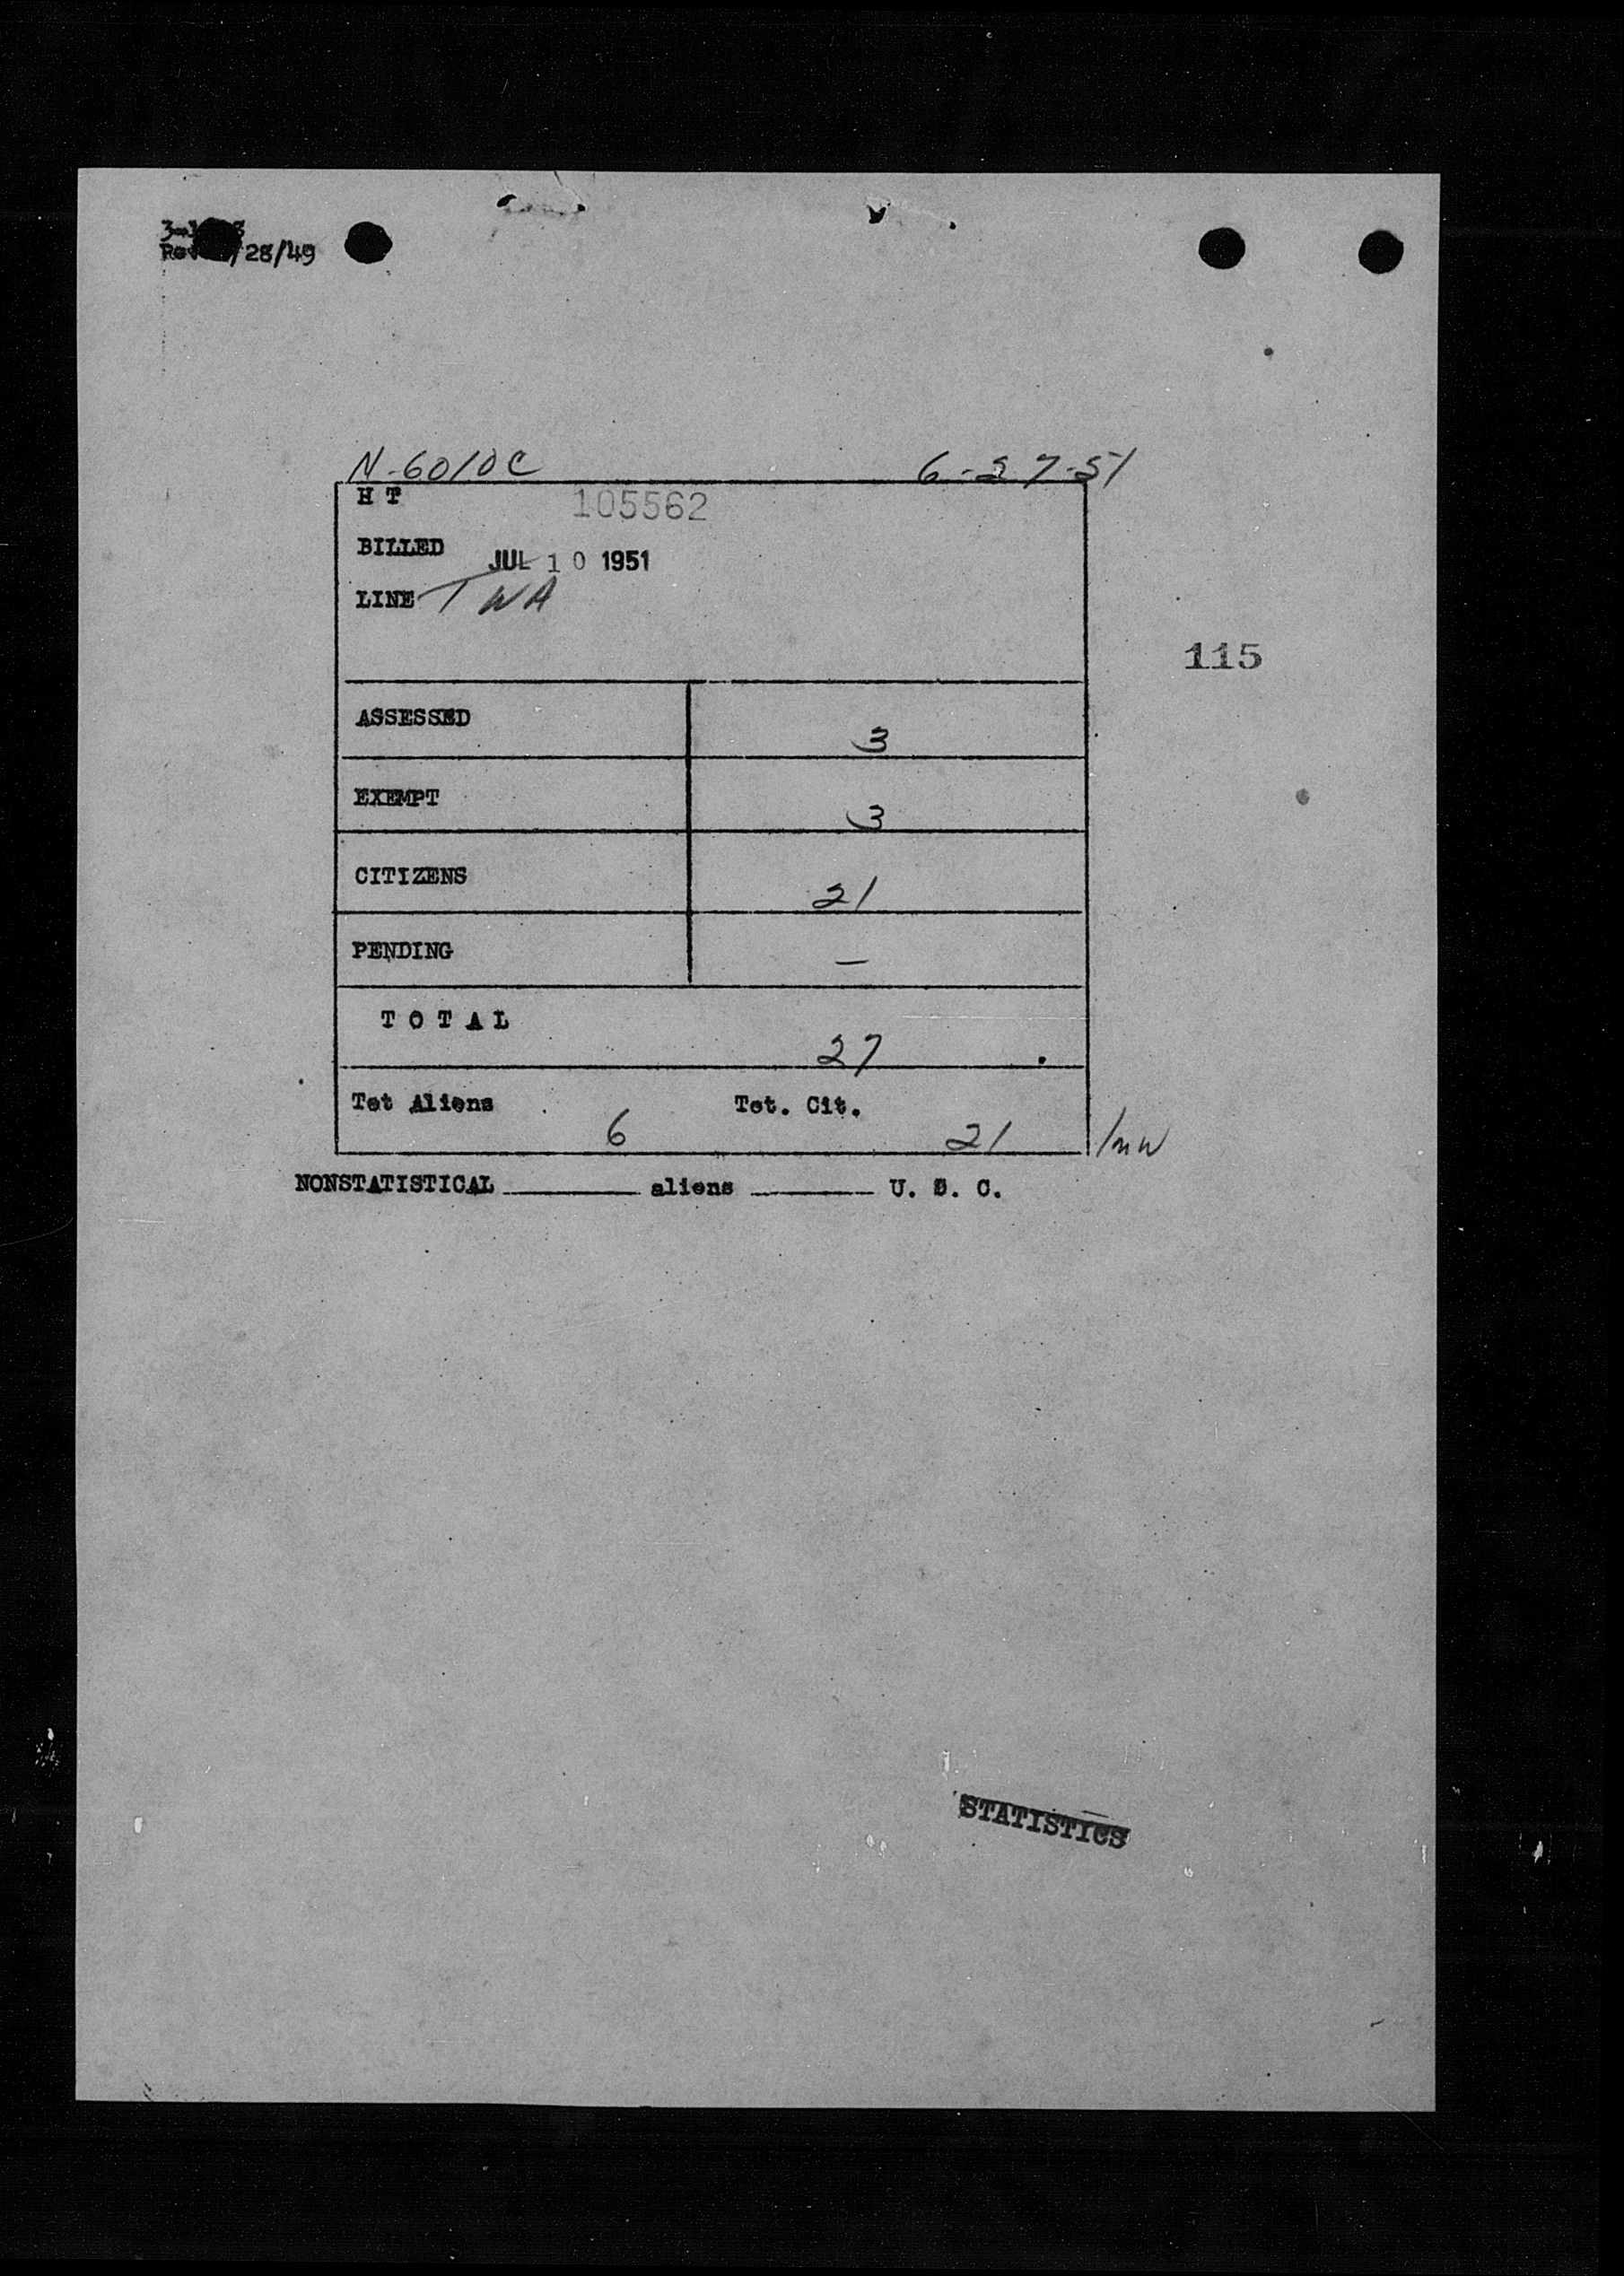 28/49
N-6010C 6-27-51
H T 105562
BILLED JUL 10 1951
LINE TWA
115
ASSESSED 3
EXEMPT 3
CITIZENS 21
PENDING —
TOTAL 27
Tot Aliens 6 Tot. Cit. 21
NONSTATISTICAL ______ aliens ______ U. S. C.
STATISTICS